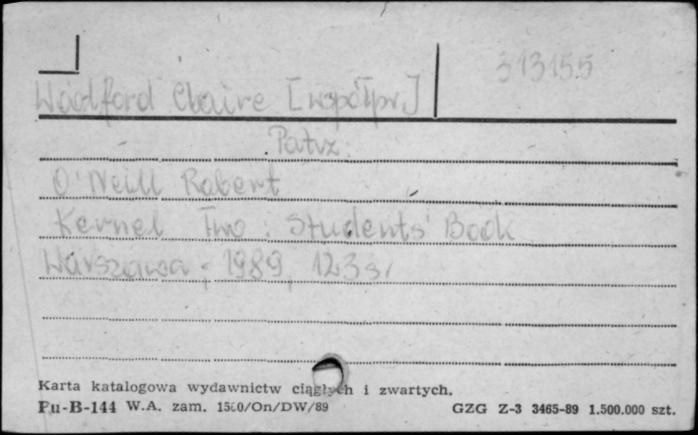 313155
Woolford Claire [współpr.]
Patrz:
O'Neill Robert
Kernel Two : Students' Book
Warszawa ; 1989, 123 s,
Karta katalogowa wydawnictw ciągłych i zwartych.
Pu-B-144 W.A. zam. 1500/On/DW/89 GZG Z-3 3465-89 1.500.000 szt.